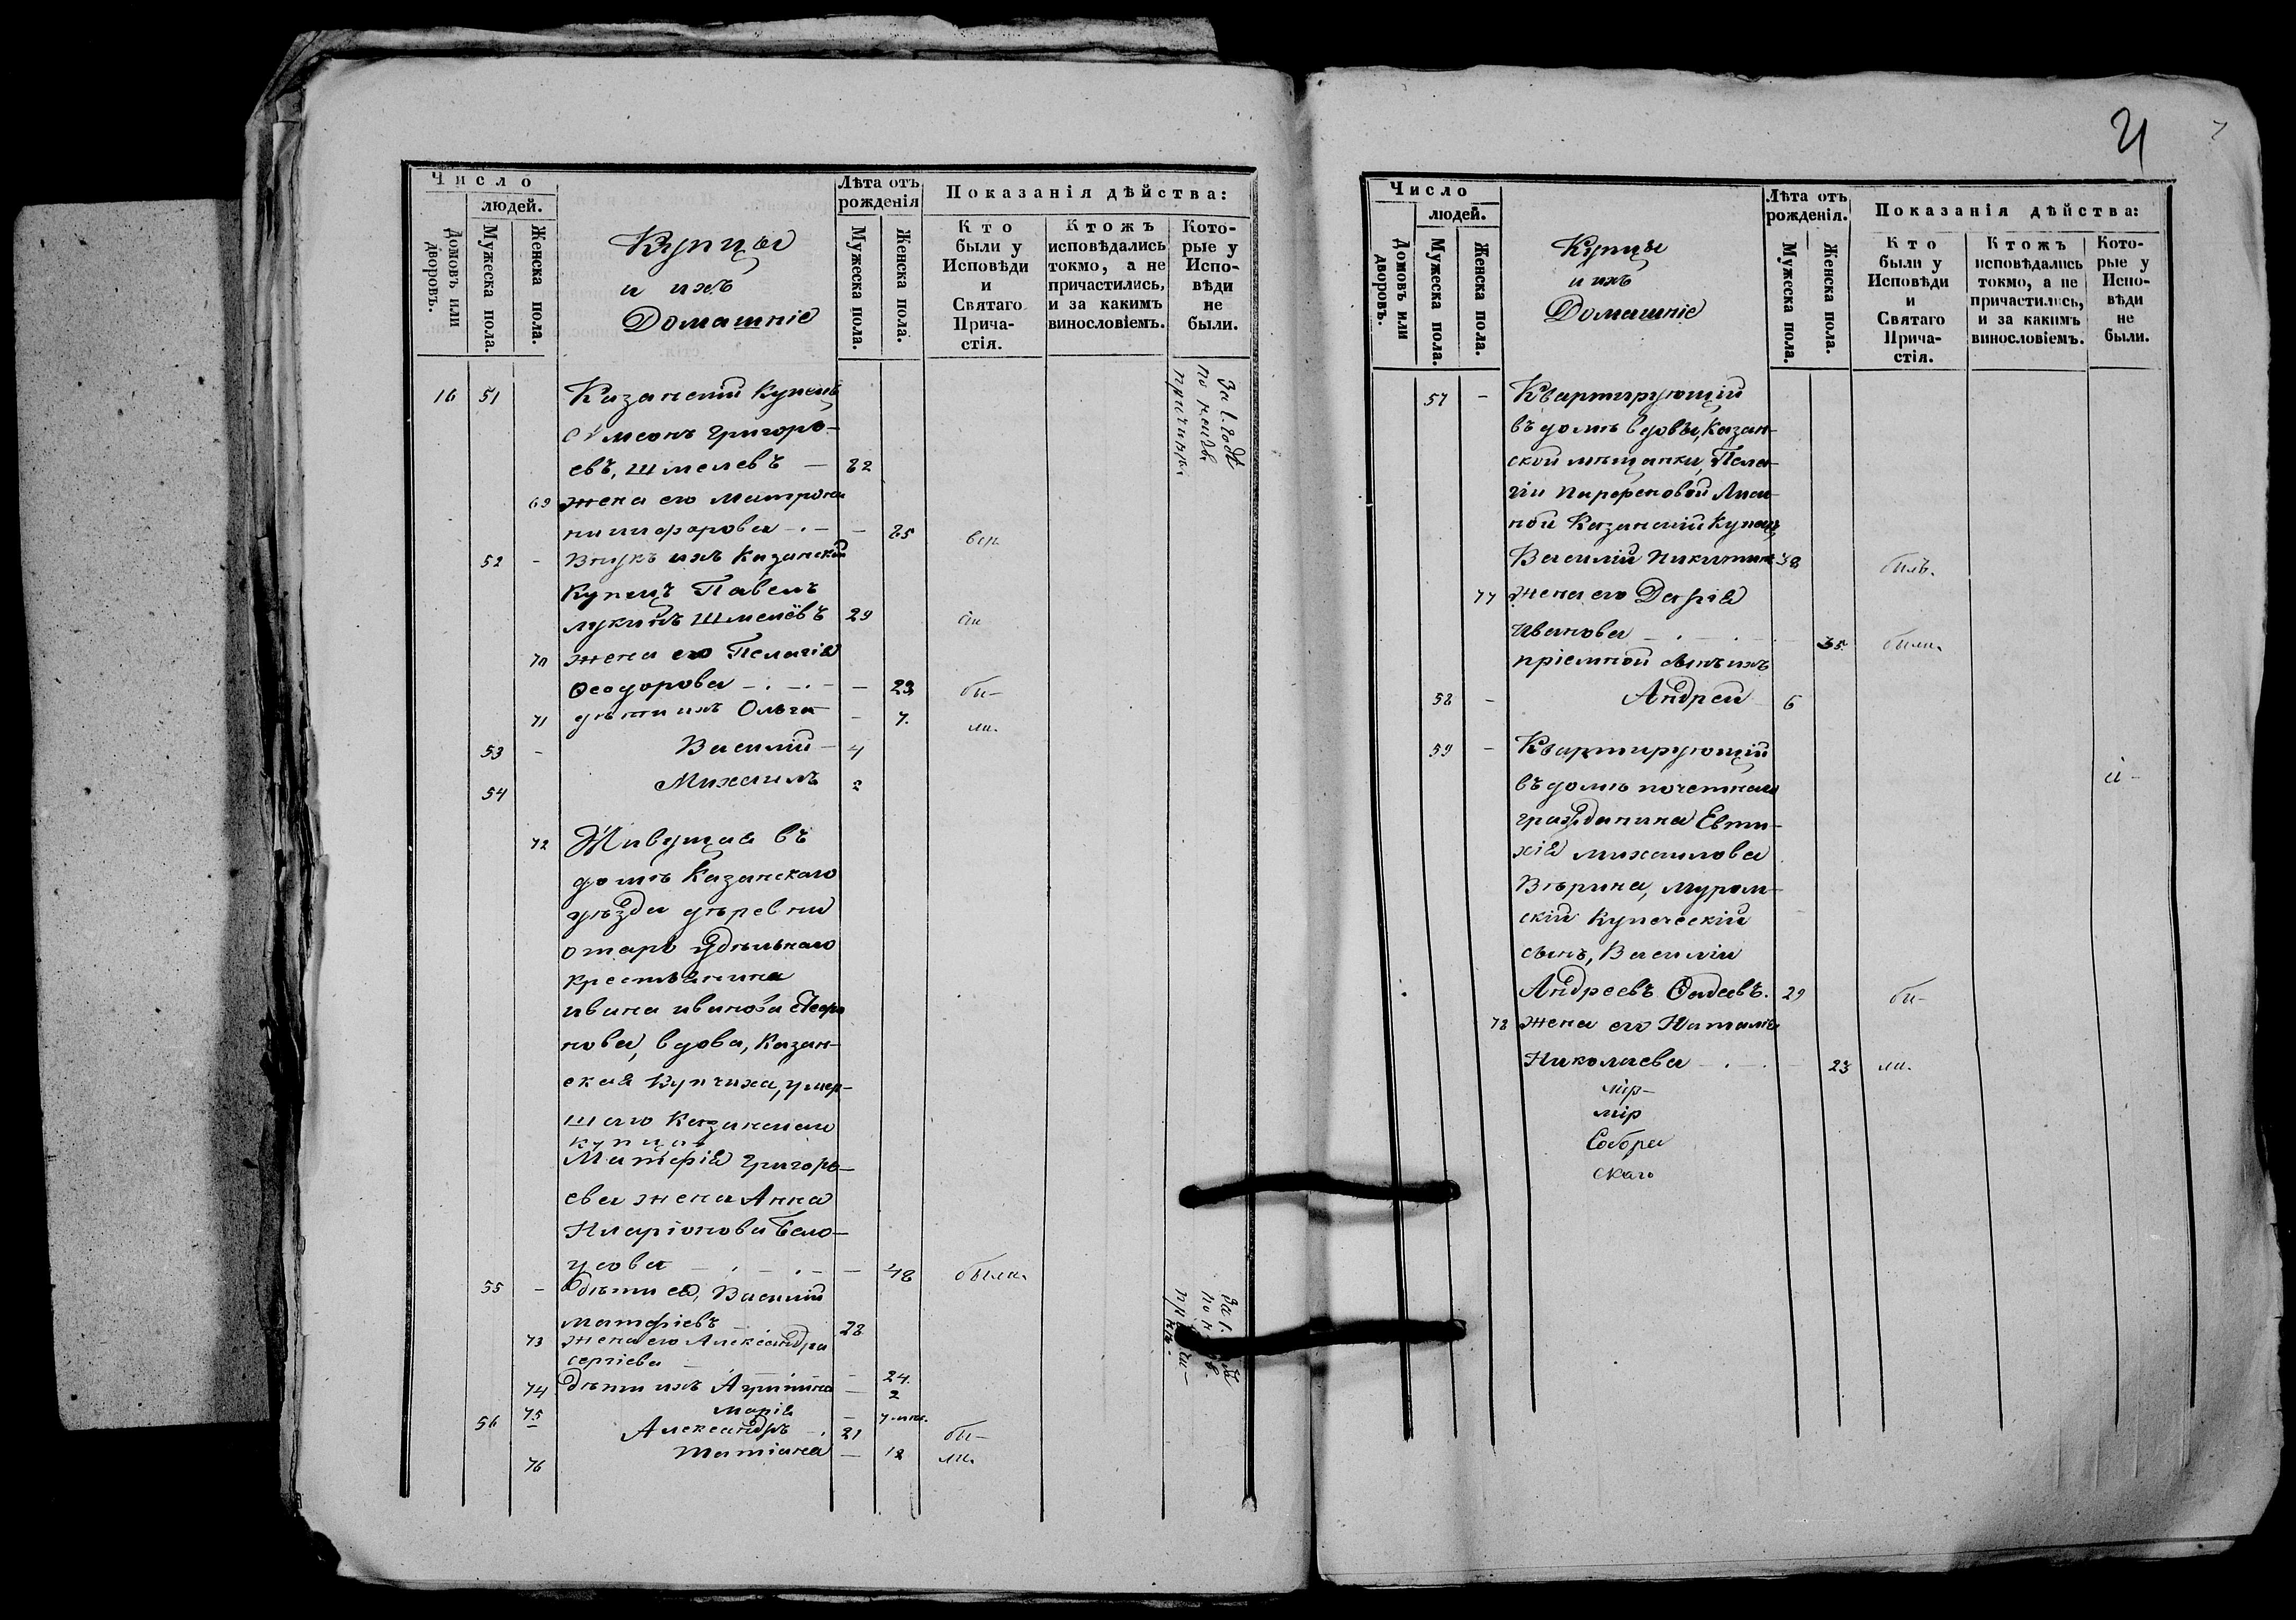 Число
людей.
Домовъ или дворовъ.
Мужеска пола.
Женска пола.
Купцы
и ихъ
Домашніе
Лѣта отъ рожденія
Мужеска пола.
Женска пола.
Показанія дѣйства:
Кто были у Исповѣди и Святаго Причастія.
Ктожъ исповѣдались токмо, а не причастились, и за какимъ винословіемъ.
Которые у Исповѣди не были.
16 51 Казанскій Купецъ
Симеонъ Григорь-
евъ, Шмелевъ — 82
69 жена его Матрона
никифорова — 85
52 - Внукъ ихъ Казанскій
Купецъ Павелъ
лукинъ Шмелёвъ 29
70 жена его Пелагія
Ѳеодорова — 23 бы-
71 дѣти ихъ Ольга — 7. ли.
53 - Василій — 4
54 Михаилъ 2
72 Живущая въ
домѣ Казанскаго
уѣзда дѣревни
отаръ Удѣльнаго
крестьянина
ивана иванова
нова, вдова, Казан-
ская Купчиха, умер-
шаго Казанскаго
купца
Матфія Григорь-
ева жена Анна
Иларіонова Бело-
усова — 48 была.
55 - дѣти ея, Василій
матфіевъ 28
73 жена его Александра
сергіева — 24.
74 Дѣти ихъ — 2
75 Марія — 7 мѣс.
56 Александръ 21 бы-
76 татіана — 18 ли.
за 1. годъ
по неизв
причинѣ
21
Число
людей.
Домовъ или дворовъ.
Мужеска пола.
Женска пола.
Купцы
и ихъ
Домашніе
Лѣта отъ рожденія.
Мужеска пола.
Женска пола.
Показанія дѣйства:
Кто были у Исповѣди и Святаго Причастія.
Ктожъ исповѣдались токмо, а не причастились, и за какимъ винословіемъ.
Которые у Исповѣди не были.
57 - Квартирующій
въ домѣ вдовы, Казан-
ской мѣщанки, Пела-
гіи Парфеновой
ной Казанскій Купецъ
Василій Никитинъ 38 былъ.
77 жена его Дарія
Иванова — 35. была.
пріемной сынъ ихъ
58 - Андрей 6
59 - Квартирующій
въ домѣ почетнаго
гражданина Евти-
хія михаилова
Вѣрина, муром-
скій Купеческій
сынъ, Василій
Андреевъ Ѳадеевъ. 29 бы-
78 жена его Наталія
Николаева — 23 ли.
мір-
мір
Собра
скаго